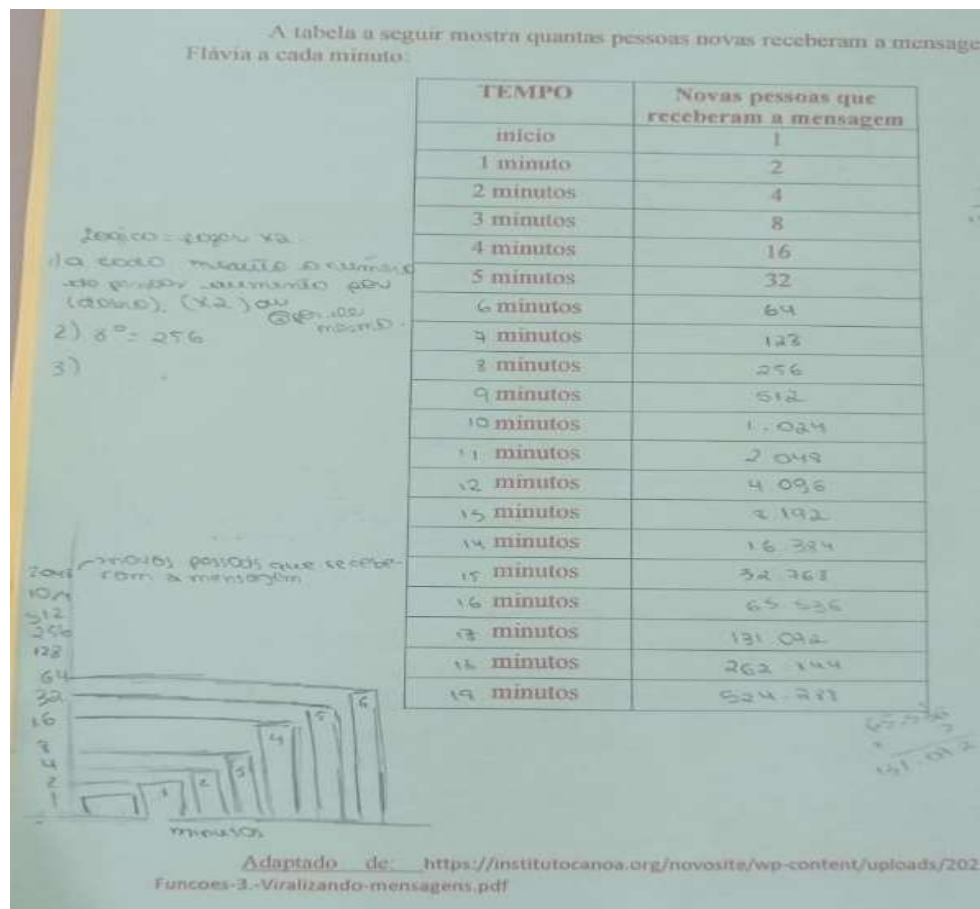 A tabela a seguir mostra quantas pessoas novas receberam a mensage
Flávia a cada minuto:
TEMPO Novas pessoas que receberam a mensagem
início 1
1 minuto 2
2 minutos 4
3 minutos 8
4 minutos 16
5 minutos 32
6 minutos 64
7 minutos 128
8 minutos 256
9 minutos 512
10 minutos 1.024
11 minutos 2 048
12 minutos 4.096
13 minutos 8.192
14 minutos 16.384
15 minutos 32.768
16 minutos 65.536
17 minutos 131.092
18 minutos 262.144
19 minutos 524.288
x2
mesmo.
2) 8º = 256
3)
novas pessoas que recebe-
ram a mensagem
512
256
128
64
32
16
8
4
2
1
1 2 3 4 5 6
minutos
65.536
2
131.092
Adaptado de: https://institutocanoa.org/novosite/wp-content/uploads/202
Funcoes-3.-Viralizando-mensagens.pdf